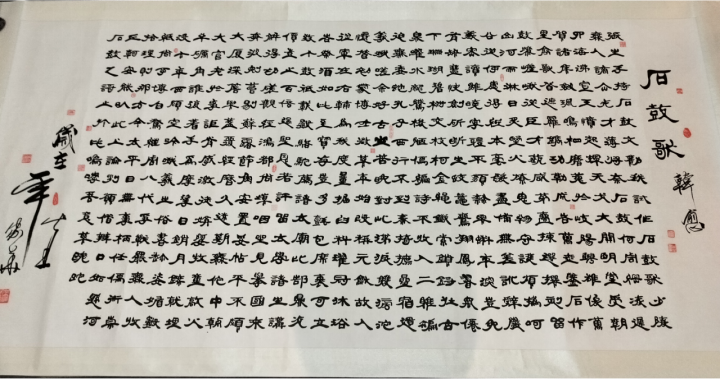 石鼓歌
韓愈
張生手持石鼓文勸我試作石鼓歌少陵
無人謫仙死才薄將奈石鼓何周綱陵遲
四海沸宣王憤起揮天戈大開明堂受朝
賀諸侯劍佩鳴相磨蒐于岐陽騁雄俊萬
里禽獸皆遮羅鐫功勒成告萬世鑿石作
鼓隳嵯峨從臣才藝咸第一揀選撰刻留
山阿雨淋日炙野火燎鬼物守護煩撝呵
公從何處得紙本毫髮盡備無差訛辭嚴
義密讀難曉字體不類隸與蝌年深豈免
有缺畫快劍斫斷生蛟鼉鸞翔鳳翥衆仙
下珊瑚碧樹交枝柯金繩鐵索鎖鈕壯古
鼎躍水龍騰梭陋儒編詩不收入二雅褊
迫無委蛇孔子西行不到秦掎摭星宿遺
羲娥嗟余好古生苦晚對此涕淚雙滂沱
憶昔初蒙博士徵其年始改稱元和故人
從軍在右輔為我度量掘臼科濯冠沐浴
告祭酒如此至寶存豈多氈包席裹可立
致十鼓只載數駱駝薦諸太廟比郜鼎光
價豈止百倍過聖恩若許留太學諸生講
解得切磋觀經鴻都尚填咽坐見舉國來
奔波剜苔剔蘚露節角安置妥帖平不頗
大廈深簷與蓋覆經歷久遠期無佗中朝
大官老於事詎肯感激徒媕婀牧童敲火
牛礪角誰復著手為摩挲日銷月鑠就埋
沒六年西顧空吟哦羲之俗書趁姿媚數
紙尚可博白鵝繼周八代爭戰罷無人收
拾理則那方今太平日無事柄任儒術崇
丘軻安能以此上論列願借辯口如懸河
石鼓之歌止於此嗚呼吾意其蹉跎
歲在
年